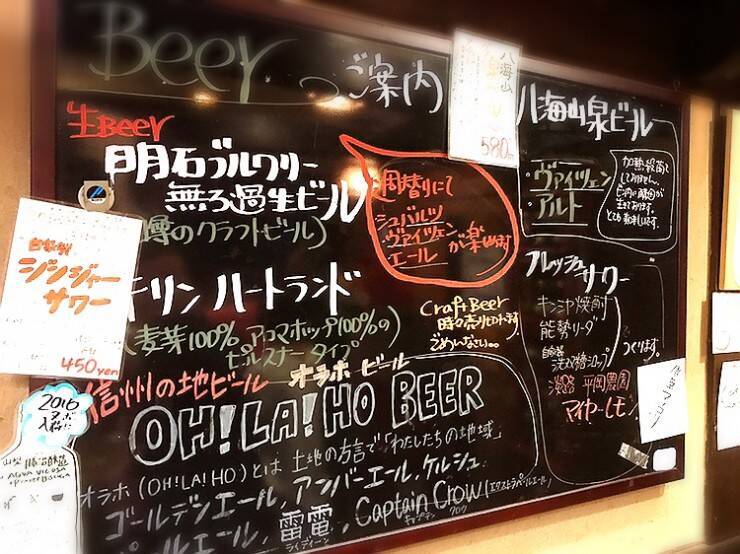 Beer
のご案内
生Beer
明石ブルワリー
無ろ過生ビール
(樽のクラフトビール)
週替りにて
シュバルツ
ヴァイツェン
エール
が楽しめます
キリン ハートランド
(麦芽100% アロマホップ100%の
ピルスナータイプ)
Craft Beer
時々売り切れます
ごめんなさい。。
信州の地ビール オラホ ビール
OH!LA!HO BEER
オラホ (OH!LA!HO)とは 土地の方言で「わたしたちの地域」
ゴールデンエール, アンバーエール, ケルシュ
ペールエール, 雷電, Captain Crow (エクストラペールエール)
ライディーン キャプテン クロウ
八海山
580
八海山泉ビール
ヴァイツェン
アルト
加熱殺菌して
しておりません。
生きてます。
とても美味しいです。
フレッシュサワー
キンミヤ焼酎
能勢ソーダ
自家製
つくります。
淡路 平岡農園
マイヤーレモン
自家製
ジンジャー
サワー
450yen
2016
入荷!!
山梨